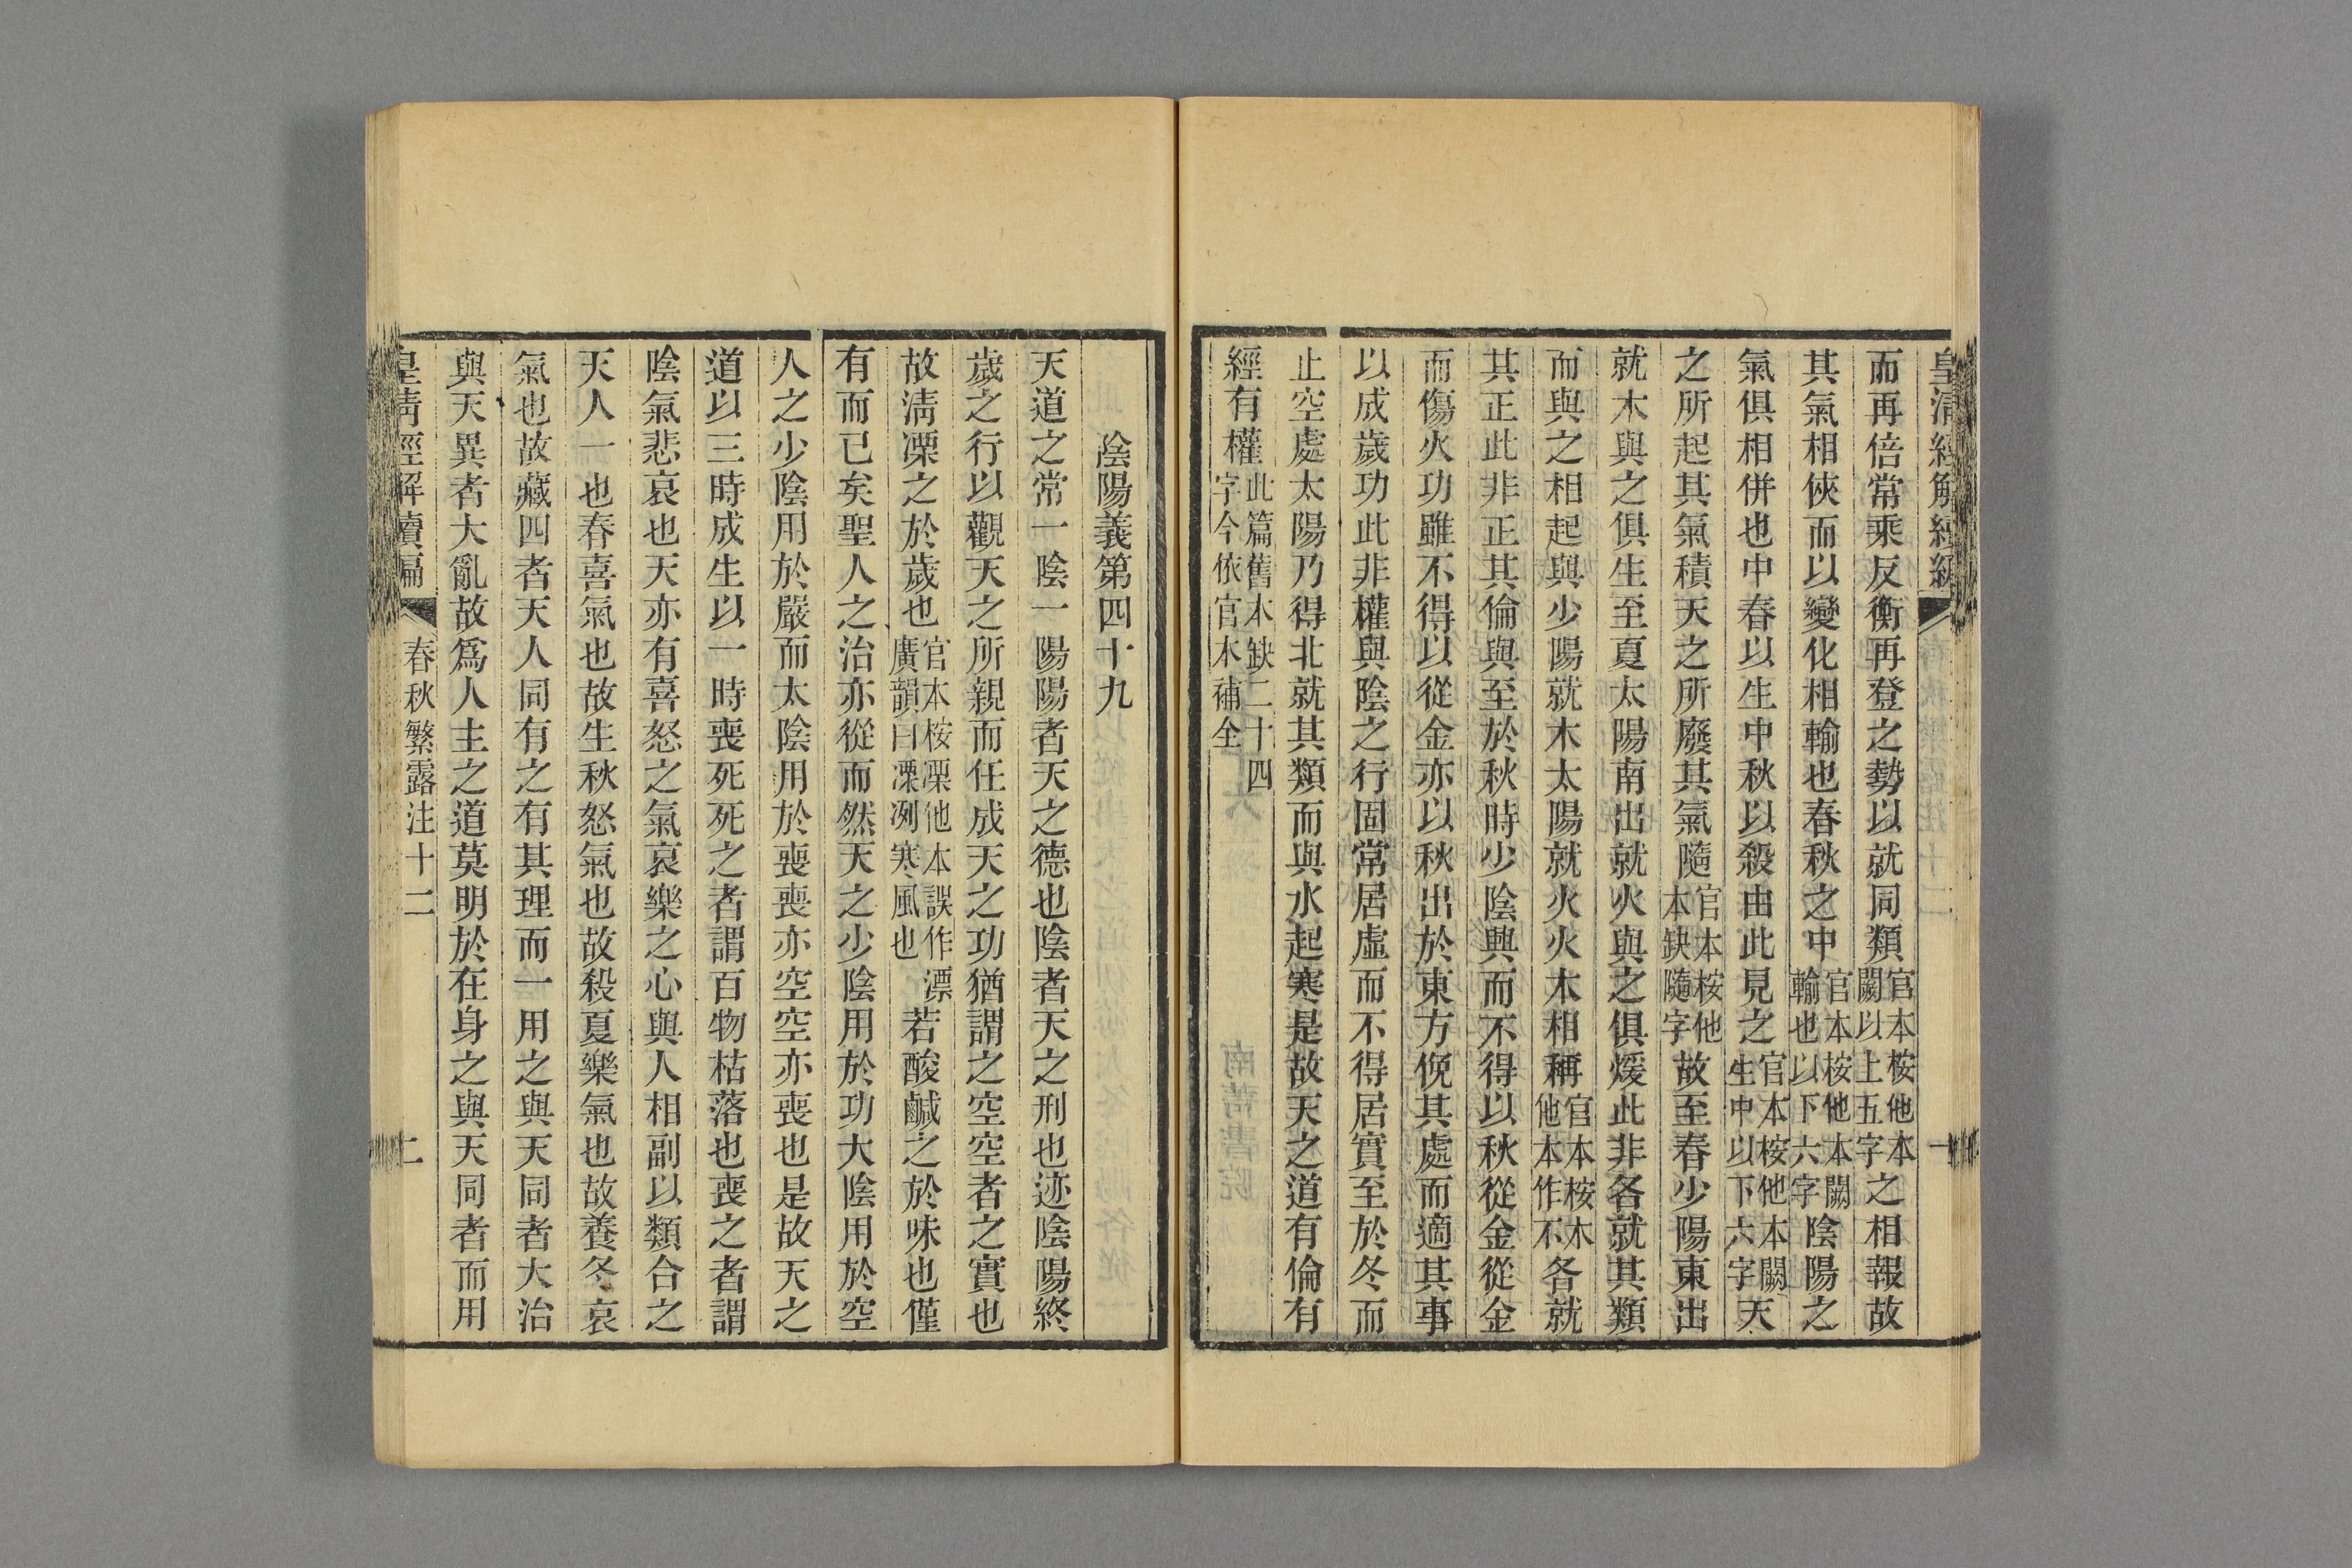 皇清經解續編
一
而再倍常乘反衡再登之勢以就同類官本桉他本闕以上五字之相報故
其氣相俠而以變化相輸也春秋之中官本桉他本闕輸也以下六字陰陽之
氣俱相併也中春以生中秋以殺由此見之官本桉他本闕生中以下六字天
之所起其氣積天之所廢其氣隨官本桉他本缺隨字故至春少陽東出
就木與之俱生至夏太陽南出就火與之俱煖此非各就其類
而與之相起與少陽就木太陽就火火木相稱官本桉木他本作不各就
其正此非正其倫與至於秋時少陰興而不得以秋從金從金
而傷火功雖不得以從金亦以秋出於東方俛其處而適其事
以成歲功此非權與陰之行固常居虛而不得居實至於冬而
止空處太陽乃得北就其類而與水起寒是故天之道有倫有
經有權此篇舊本缺二十四字今依官本補全
陰陽義第四十九
天道之常一陰一陽陽者天之德也陰者天之刑也迹陰陽終
歲之行以觀天之所親而任成天之功猶謂之空空者之實也
故清凓之於歲也官本桉凓他本誤作漂廣韻曰凓冽寒風也若酸鹹之於味也僅
有而已矣聖人之治亦從而然天之少陰用於功大陰用於空
人之少陰用於嚴而太陰用於喪喪亦空空亦喪也是故天之
道以三時成生以一時喪死死之者謂百物枯落也喪之者謂
陰氣悲哀也天亦有喜怒之氣哀樂之心與人相副以類合之
天人一也春喜氣也故生秋怒氣也故殺夏樂氣也故養冬哀
氣也故藏四者天人同有之有其理而一用之與天同者大治
與天異者大亂故爲人主之道莫明於在身之與天同者而用
皇清經解續編
春秋繁露注十二
二